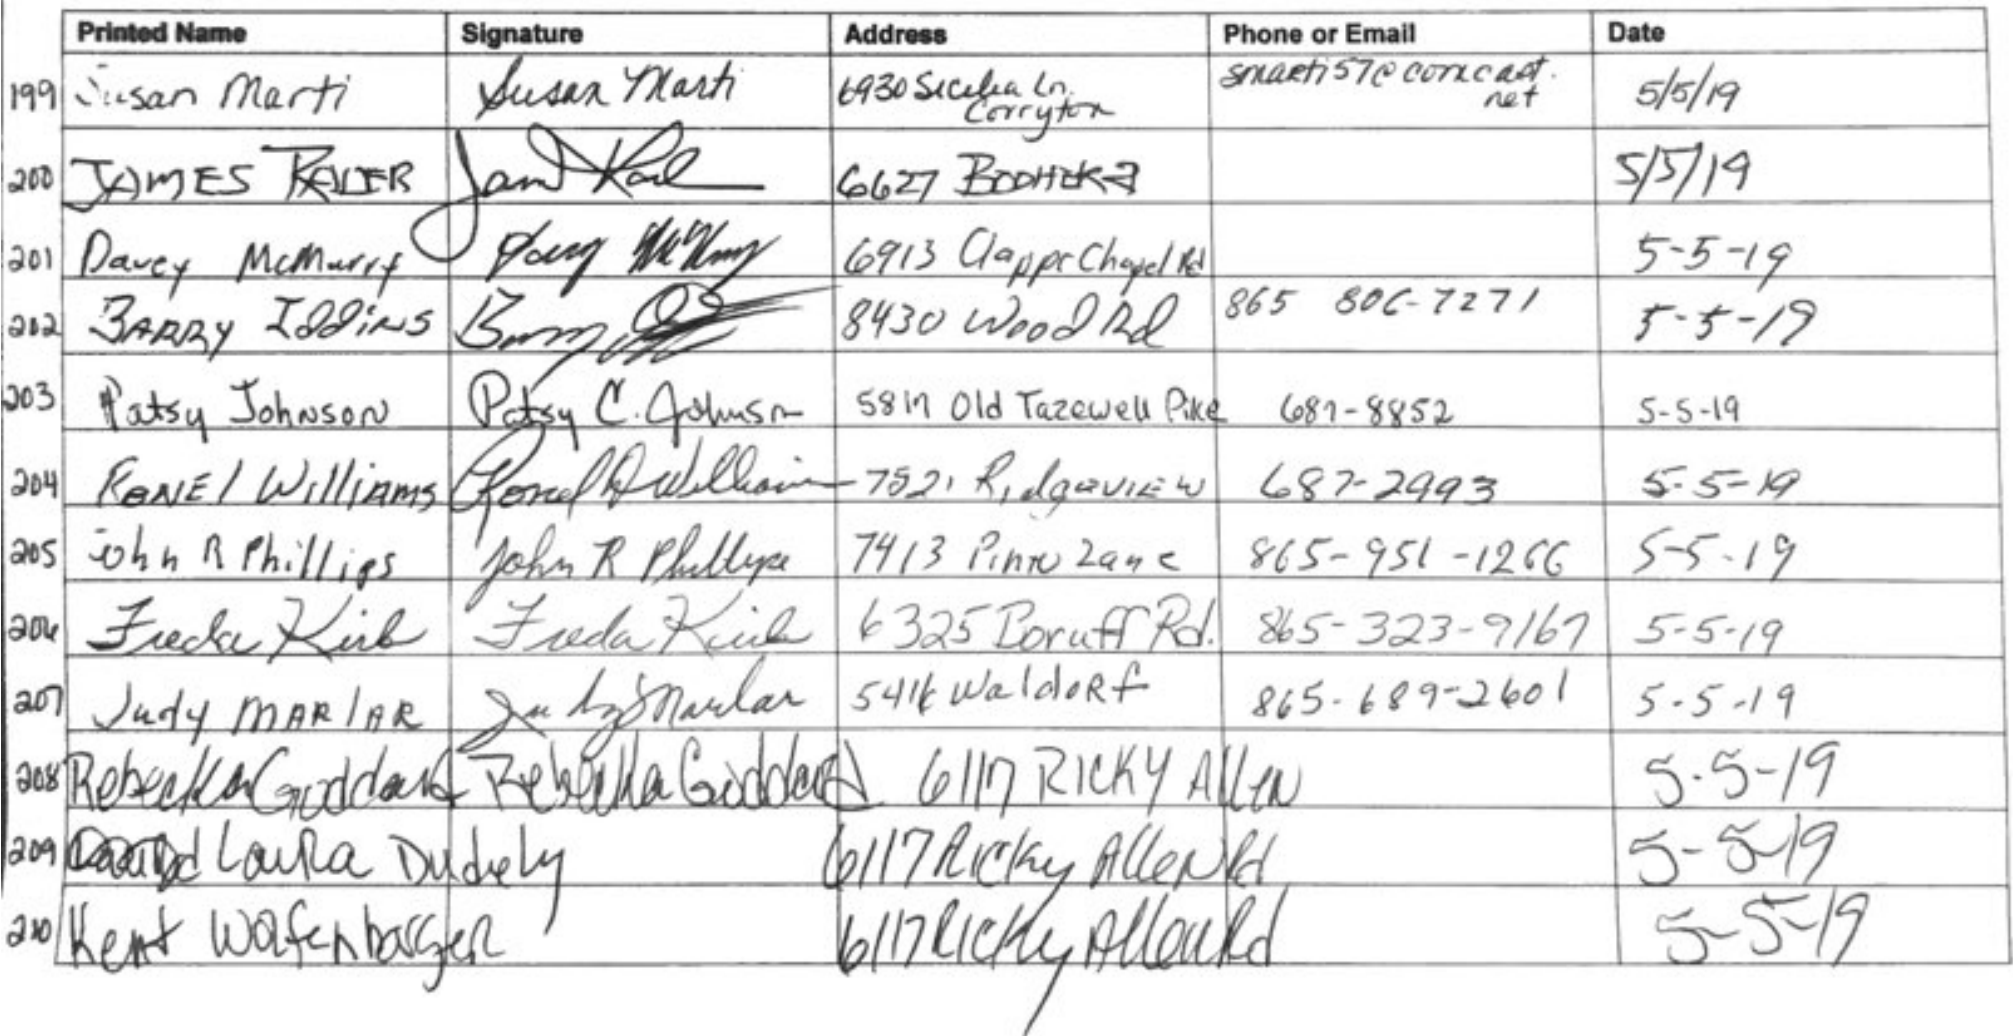 Printed Name Signature Address Phone or Email Date
199 Susan Marti Susan Marti 6930 Sicilia Ln. Corryton smarti57@comcast.net 5/5/19
200 JAMES 6627 5/5/19
201 Davey McMurry 6913 Chapel Rd 5-5-19
202 BARRY IDDINS Barry 8430 Wood Rd 865 806-7271 5-5-19
203 Patsy Johnson Patsy C. Johnson 5817 Old Tazewell Pike 687-8852 5-5-19
204 RONEl WilliAMS Ronel D Williams 7521 RidgeviEW 687-2993 5-5-19
205 John R Phillips John R Phillips 7413 Lane 865-951-1266 5-5-19
206 Freda Kirk Freda Kirk 6325 Boruff Rd. 865-323-9167 5-5-19
207 Judy MARlAR Judy Marlar WaldoRf 865-689-2601 5-5-19
208 Rebecka Goddard Rebecka Goddard 6117 RICKY AllEN 5-5-19
209 LauRa 6117 Ricky Allen Rd 5-5-19
210 Kent Wolfenbarger 6117 Ricky Allen Rd 5-5-19